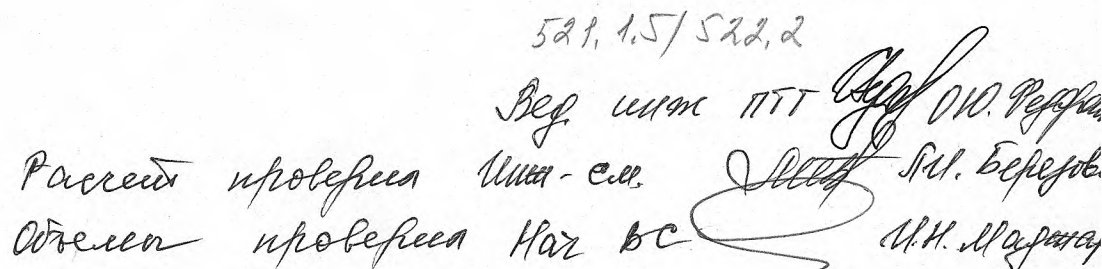 521.1.5/522.2
Вед. инж ПТГ О.Ю.
Расчет проверил Инж-см. Березов
Объемы проверил Нач ВС И.Н.